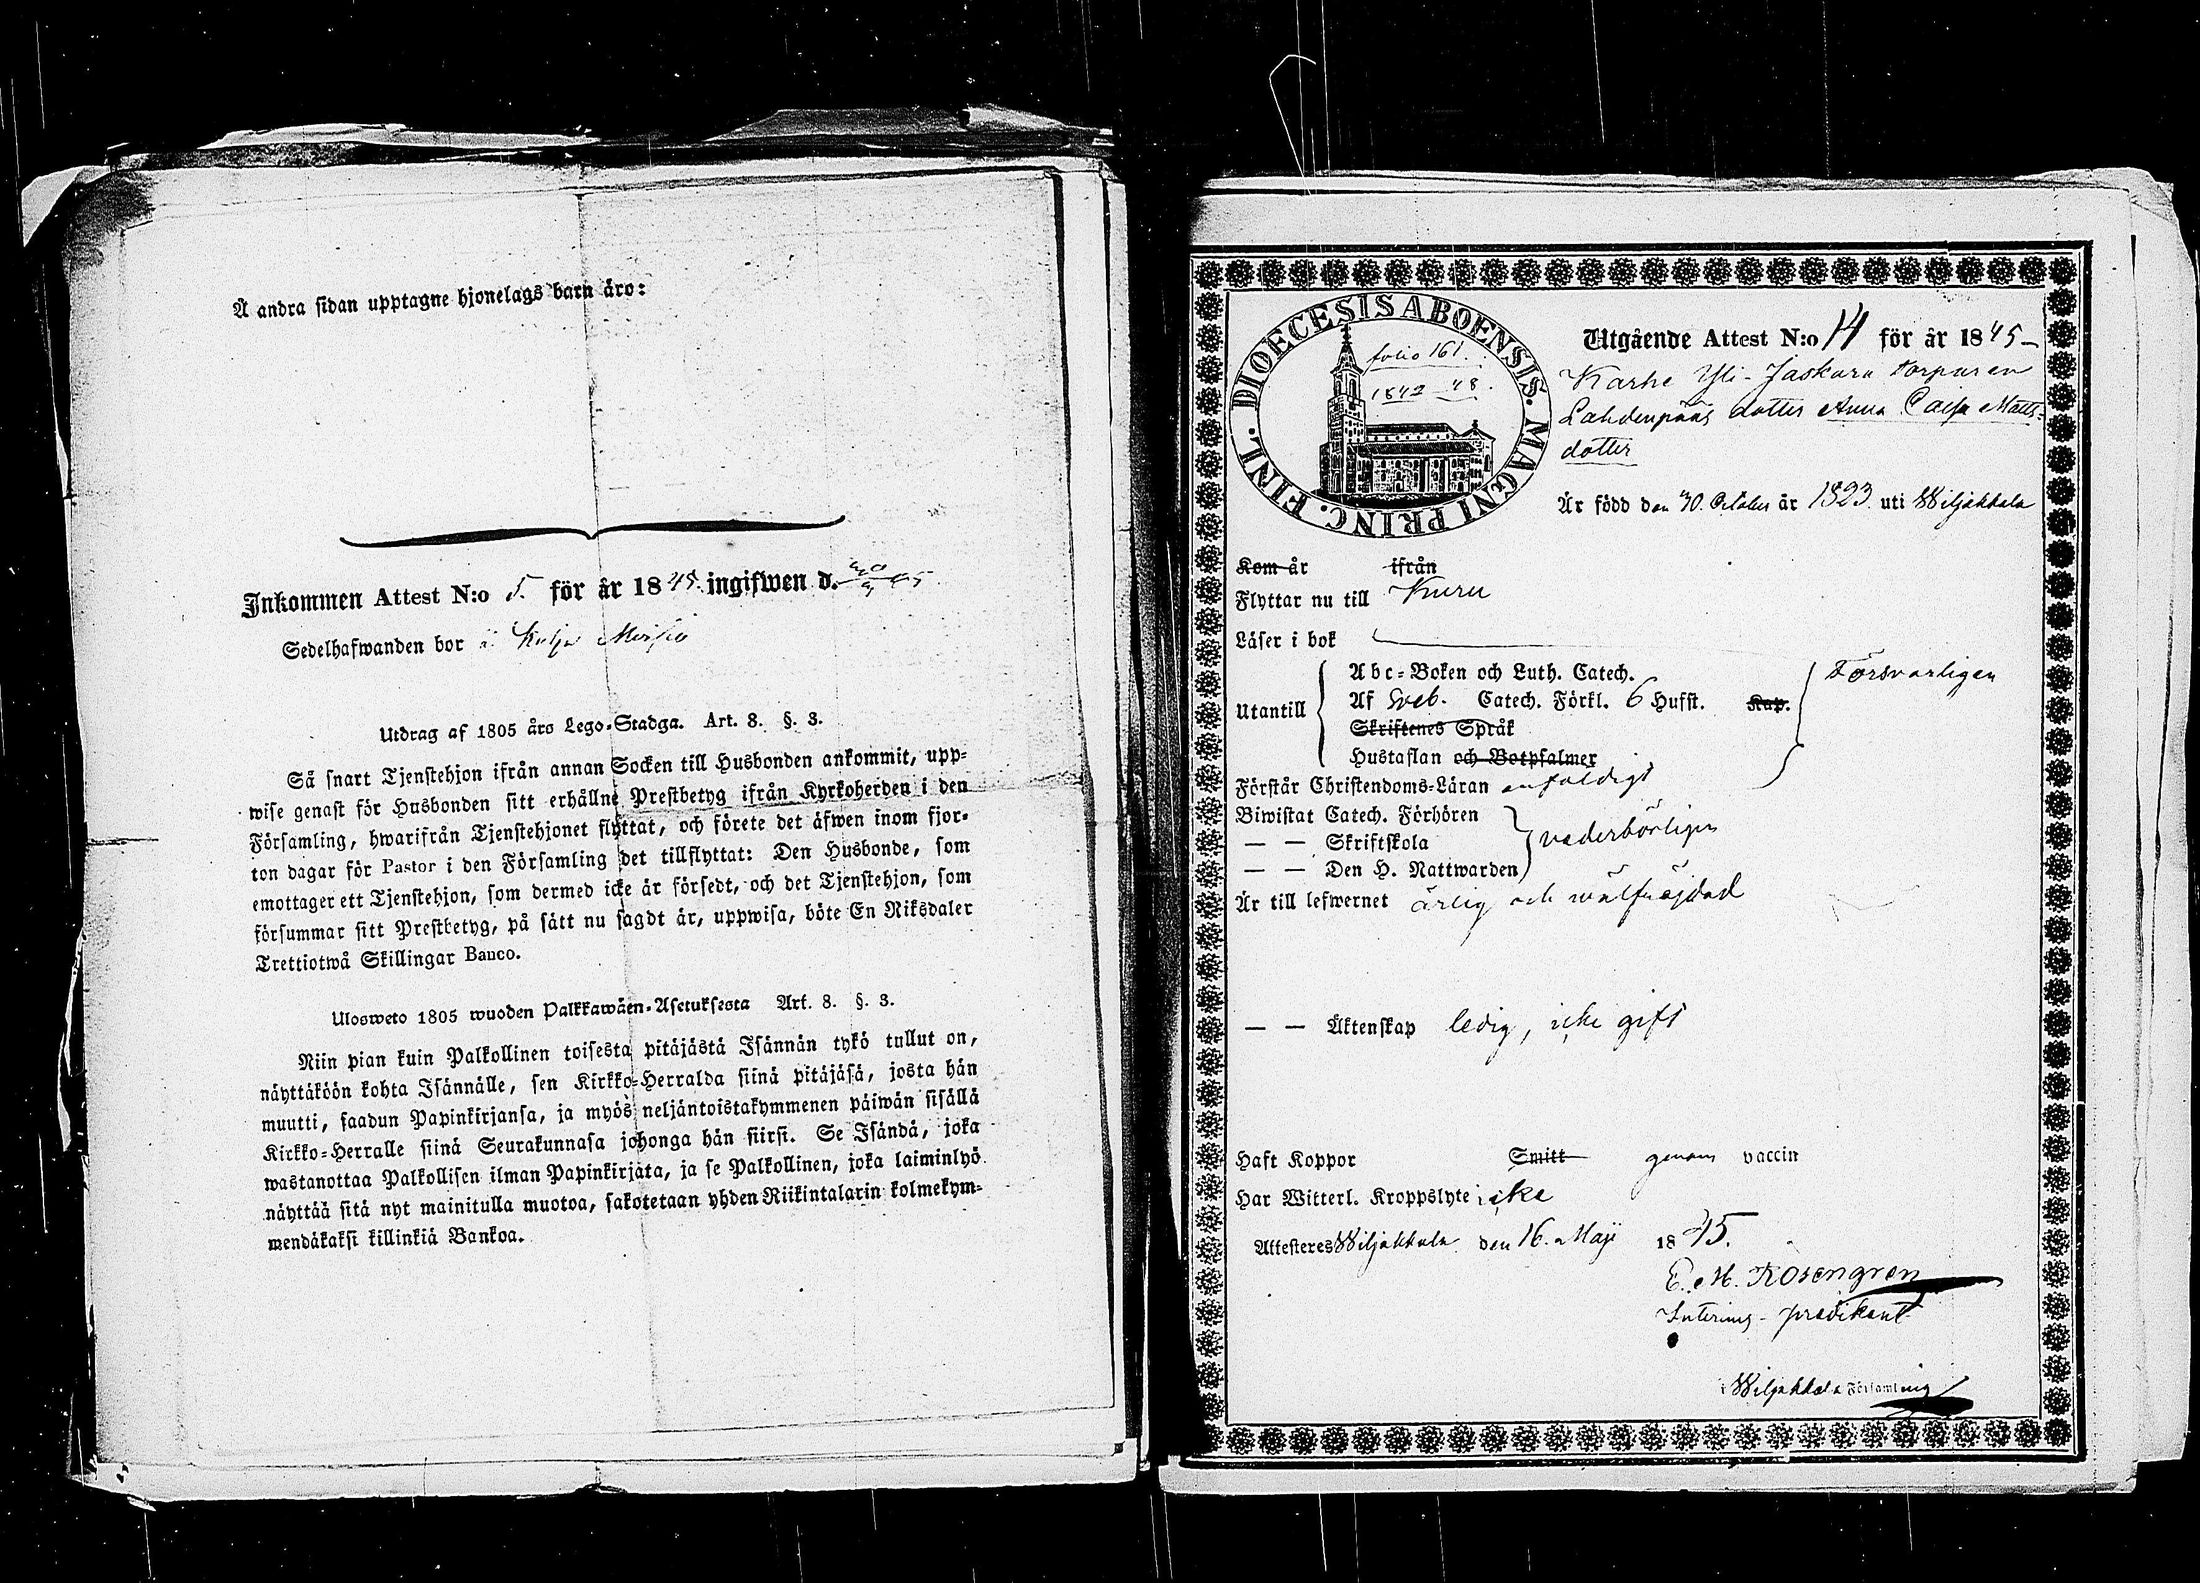 Å andra sidan upptagne hjonelags barn äro:
Inkommen Attest N:o 5. för år 1845. ingifwen d.
Sedelhafwanden bor i
Utdrag af 1805 års Lego-Stadga. Art. 8. §. 3.
Så snart Tjenstehjon ifrån annan Socken till Husbonden ankommit, upp-
wise genast för Husbonden sitt erhållne Prestbetyg ifrån Kyrkoherden i den
Församling, hwarifrån Tjenstehjonet flyttat, och förete det äfwen inom fjor-
ton dagar för Pastor i den Församling det tillflyttat: Den Husbonde, som
emottager ett Tjenstehjon, som dermed icke är försedt, och det Tjenstehjon, som
försummar sitt Prestbetyg, på sätt nu sagdt är, uppwisa, böte En Riksdaler
Trettiotwå Skillingar Banco.
Ulosweto 1805 wuoden Palkkawäen-Asetuksesta Art. 8. §. 3.
Niin pian kuin Palkollinen toisesta pitäjästä Isännän tykö tullut on,
näyttäköön kohta Isännälle, sen Kirkko-Herralda siinä pitäjäsä, josta hän
muutti, saadun Papinkirjansa, ja myös neljäntoistakymmenen päiwän sisällä
Kirkko-Herralle siinä Seurakunnasa johonga hän siirsi. Se Isändä, joka
wastanottaa Palkollisen ilman Papinkirjata, ja se Palkollinen, joka laiminlyö
näyttää sitä nyt mainitulla muotoa, sakotetaan yhden Riikintalarin kolmekym-
mendäkaksi killinkiä Bankoa.
DIOECESIS ABOENSIS. MAGNI PRINC. FINL.
folio 161.
1842-48.
Utgående Attest N:o 14 för år 1845-
Karhe Yli-Jaskara torparen
Lahdenpääs dotter Anna Caisa Matts-
dotter
Är född den 30. October år 1823. uti Wiljakkala
Kom år ifrån
Flyttar nu till Kuru
Läser i bok
Utantill
Abc-Boken och Luth. Catech.
Af Sveb. Catech. Förkl. 6 Hufst. Kap.
Skriftenes Språk
Hustaflan och Botpsalmer
Försvarligen
Förstår Christendoms-Läran enfaldigt
Biwistat Catech. Förhören
— — Skriftskola
— — Den H. Nattwarden
vederbörligen
Är till lefwernet ärlig och wälfräjdad
— — Äktenskap ledig, icke gift
Haft Koppor Smitt genom vaccin
Har Witterl. Kroppslyte icke
Attesteres Wiljakkala den 16. Maji 1845.
E. M. Rosengren
Interims-predikant
i Wiljakkala Församling